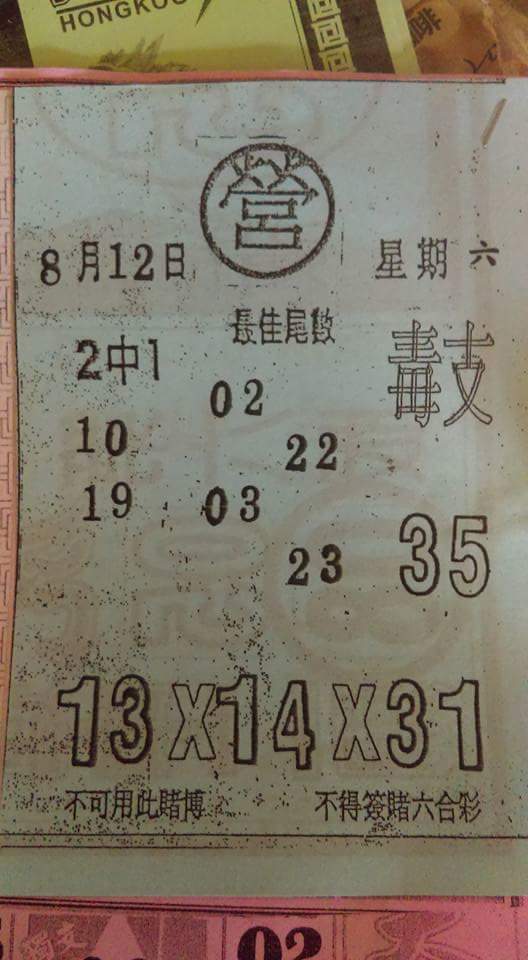 HONGKO
營
8月12日
星期六
長佳尾數
2中1
毒支
02
10
22
19
03
23
35
13X14X31
不可用此賭博
不得簽賭六合彩
02